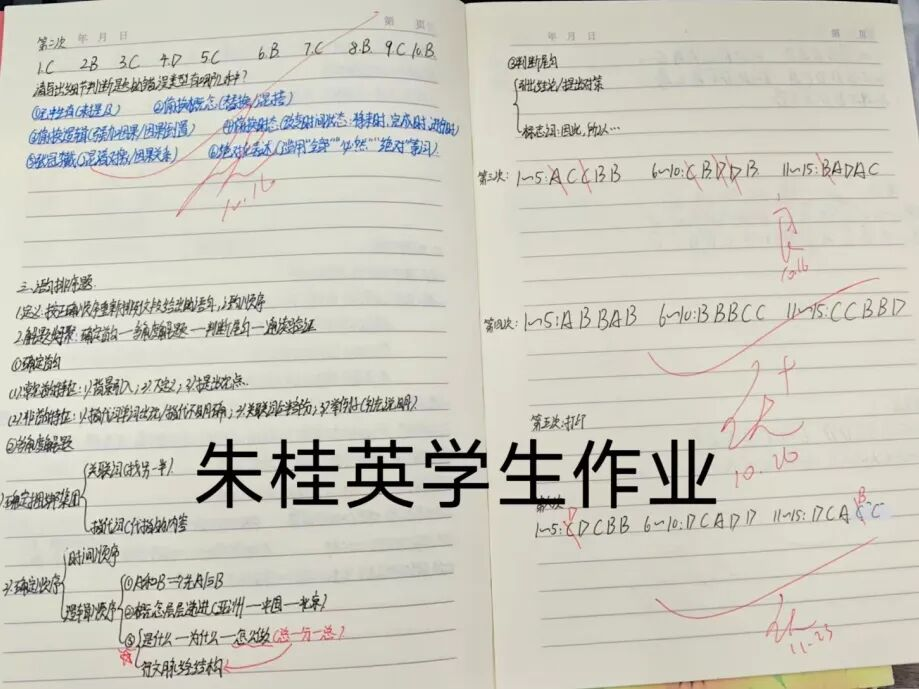 年 月 日
第 页
第二次
1.C 2.B 3.C 4.D 5.C 6.B 7.C 8.B 9.C 10.B
请写出细节判断题的错误类型有哪几种?
①无中生有(未提及) ②偷换概念(替换/混搭)
③偷换逻辑(强加因果/因果倒置) ④偷换时态(改变时间状态:将来时,完成时,进行时)
⑤张冠李戴(混淆对象/因果关系) ⑥绝对化表述(滥用"全部""必然""绝对"等词)
10.16
三.语句排序题
1.定义:按正确顺序重新排列文段给出的语句,语句顺序
2.解题步骤:确定首句—多角度解题—判断尾句—通读验证
①确定首句
(1).常见首句特征:1.背景引入;2.下定义;3.提出观点.
(2).非首句特征:1.指代词单独出现/指代不明确;2.关联词后半部分;3.举例子(例如说明).
②多角度解题
1.确定捆绑集团
关联词(找另一半)
指代词(代指的内容
2.确定顺序
时间顺序
逻辑顺序
①A和B⇒先A后B
②概念层层递进(亚洲—中国—北京)
③是什么—为什么—怎么做(总—分—总)
行文脉络结构
年 月 日
第 页
③判断尾句
引出结论/提出对策
标志词:因此,所以…
第三次: 1~5:ACCBB 6~10:CBDDB 11~15:BADAC
良
10.16
第四次: 1~5:ABBAB 6~10:BBBCC 11~15:CCBBD
10.20
第五次:打印
第六次
D
B
1~5:CDCBB 6~10:DCADD 11~15:DCACC
11.23
朱桂英学生作业